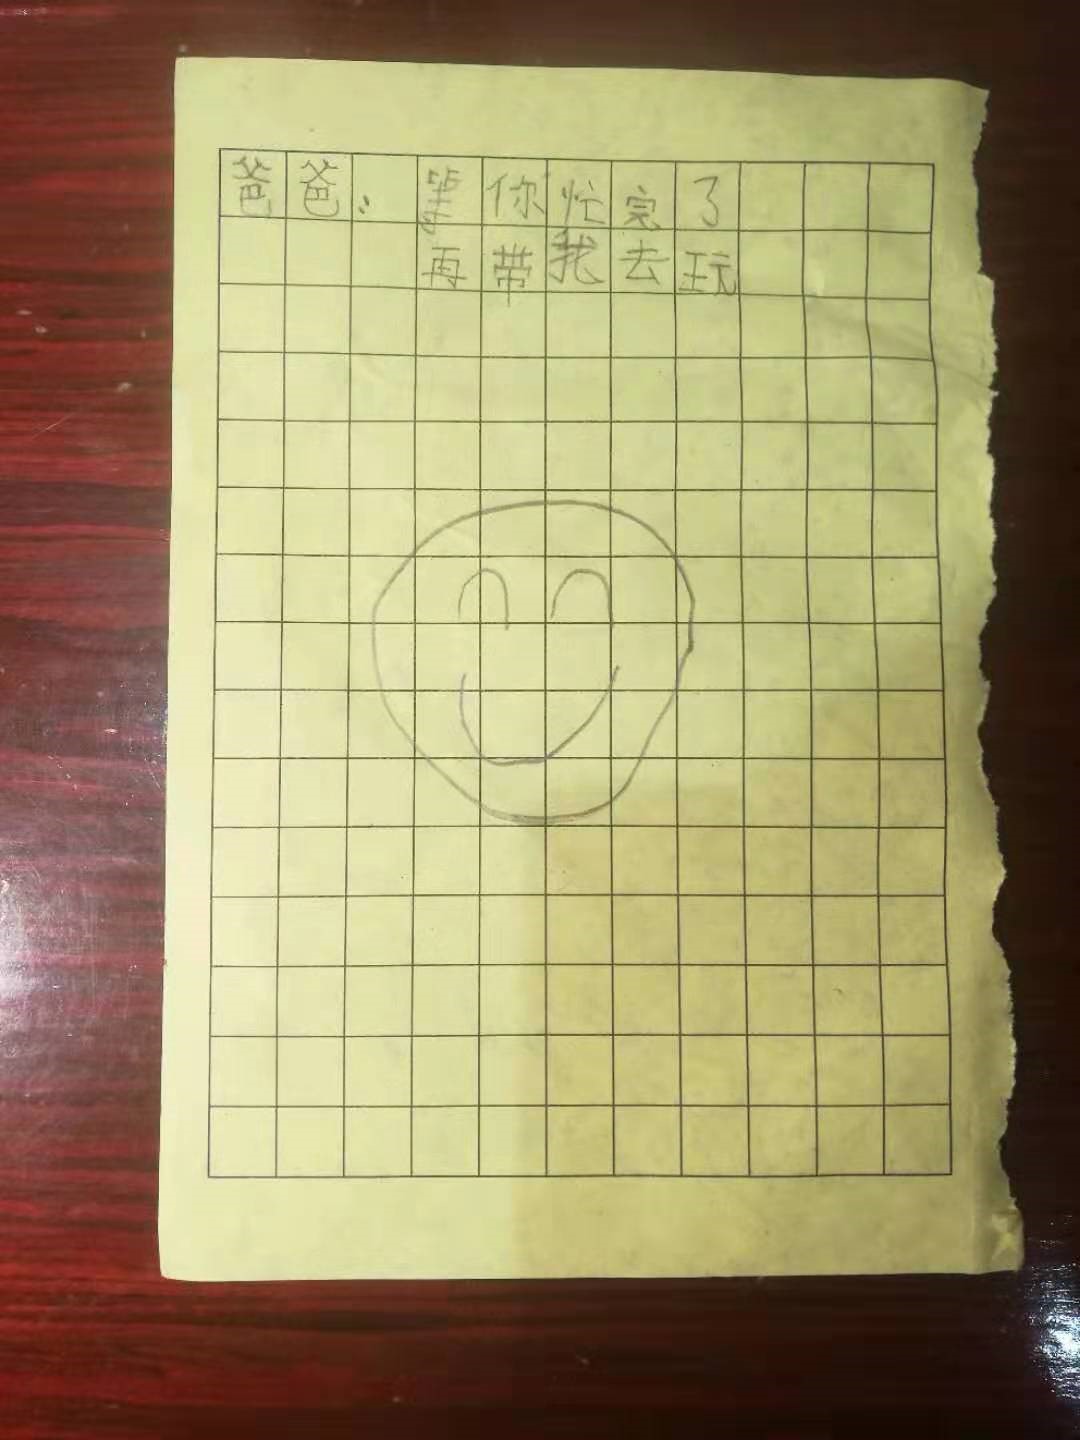 爸爸：等你忙完了
再带我去玩